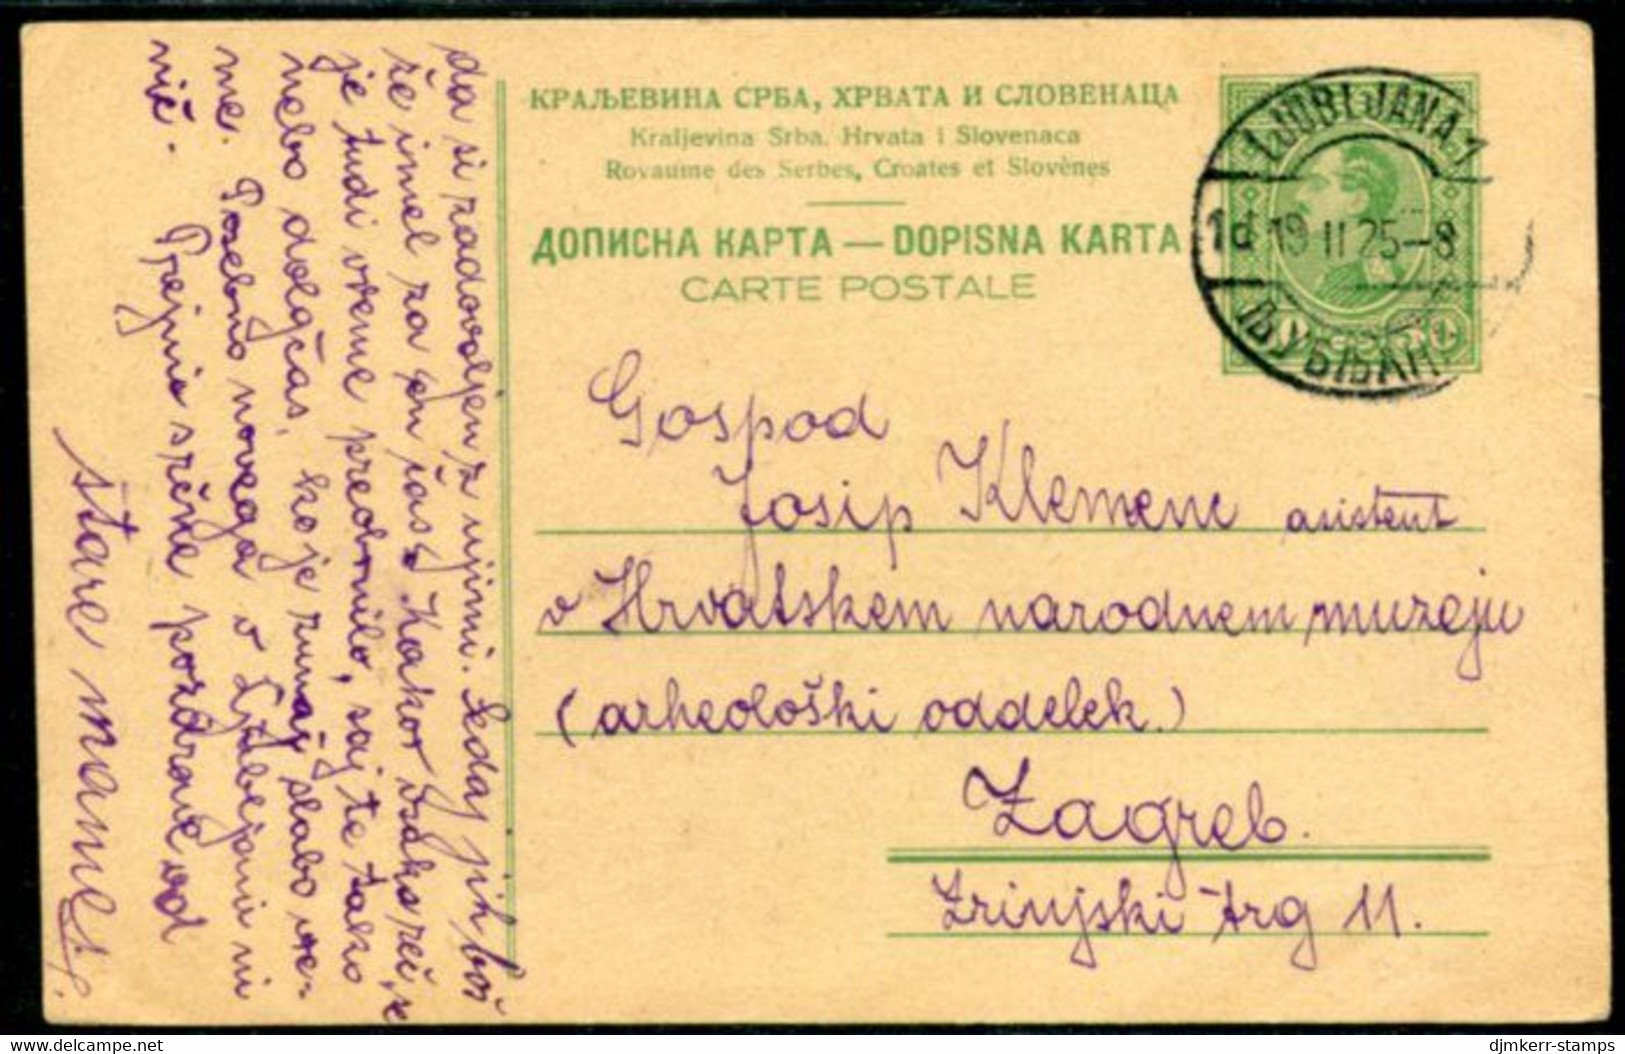 КРАЉЕВИНА СРБА, ХРВАТА И СЛОВЕНАЦА
Kraljevina Srba, Hrvata i Slovenaca
Royaume des Serbes, Croates et Slovènes
ДОПИСНА КАРТА — DOPISNA KARTA
CARTE POSTALE
LJUBLJANA 1
1d 19 II 25–8
ЉУБЉАНА
Gospod
Josip Klemenc asistent
v Hrvatskem narodnem muzeju
(arheološki oddelek.)
Zagreb.
Zrinjski trg 11.
da si zadovoljen z njimi. Sedaj jih boš
že imel za en čas. Kakor vsaka reč, se
je tudi vreme preobrnilo, saj te tako
nebo dolgčas, ko je zunaj slabo vre-
me. Posebno novega v Ljubljani ni
nič. Prejmi srčne pozdrave od
stare mame
delcampe.net
djmkerr-stamps